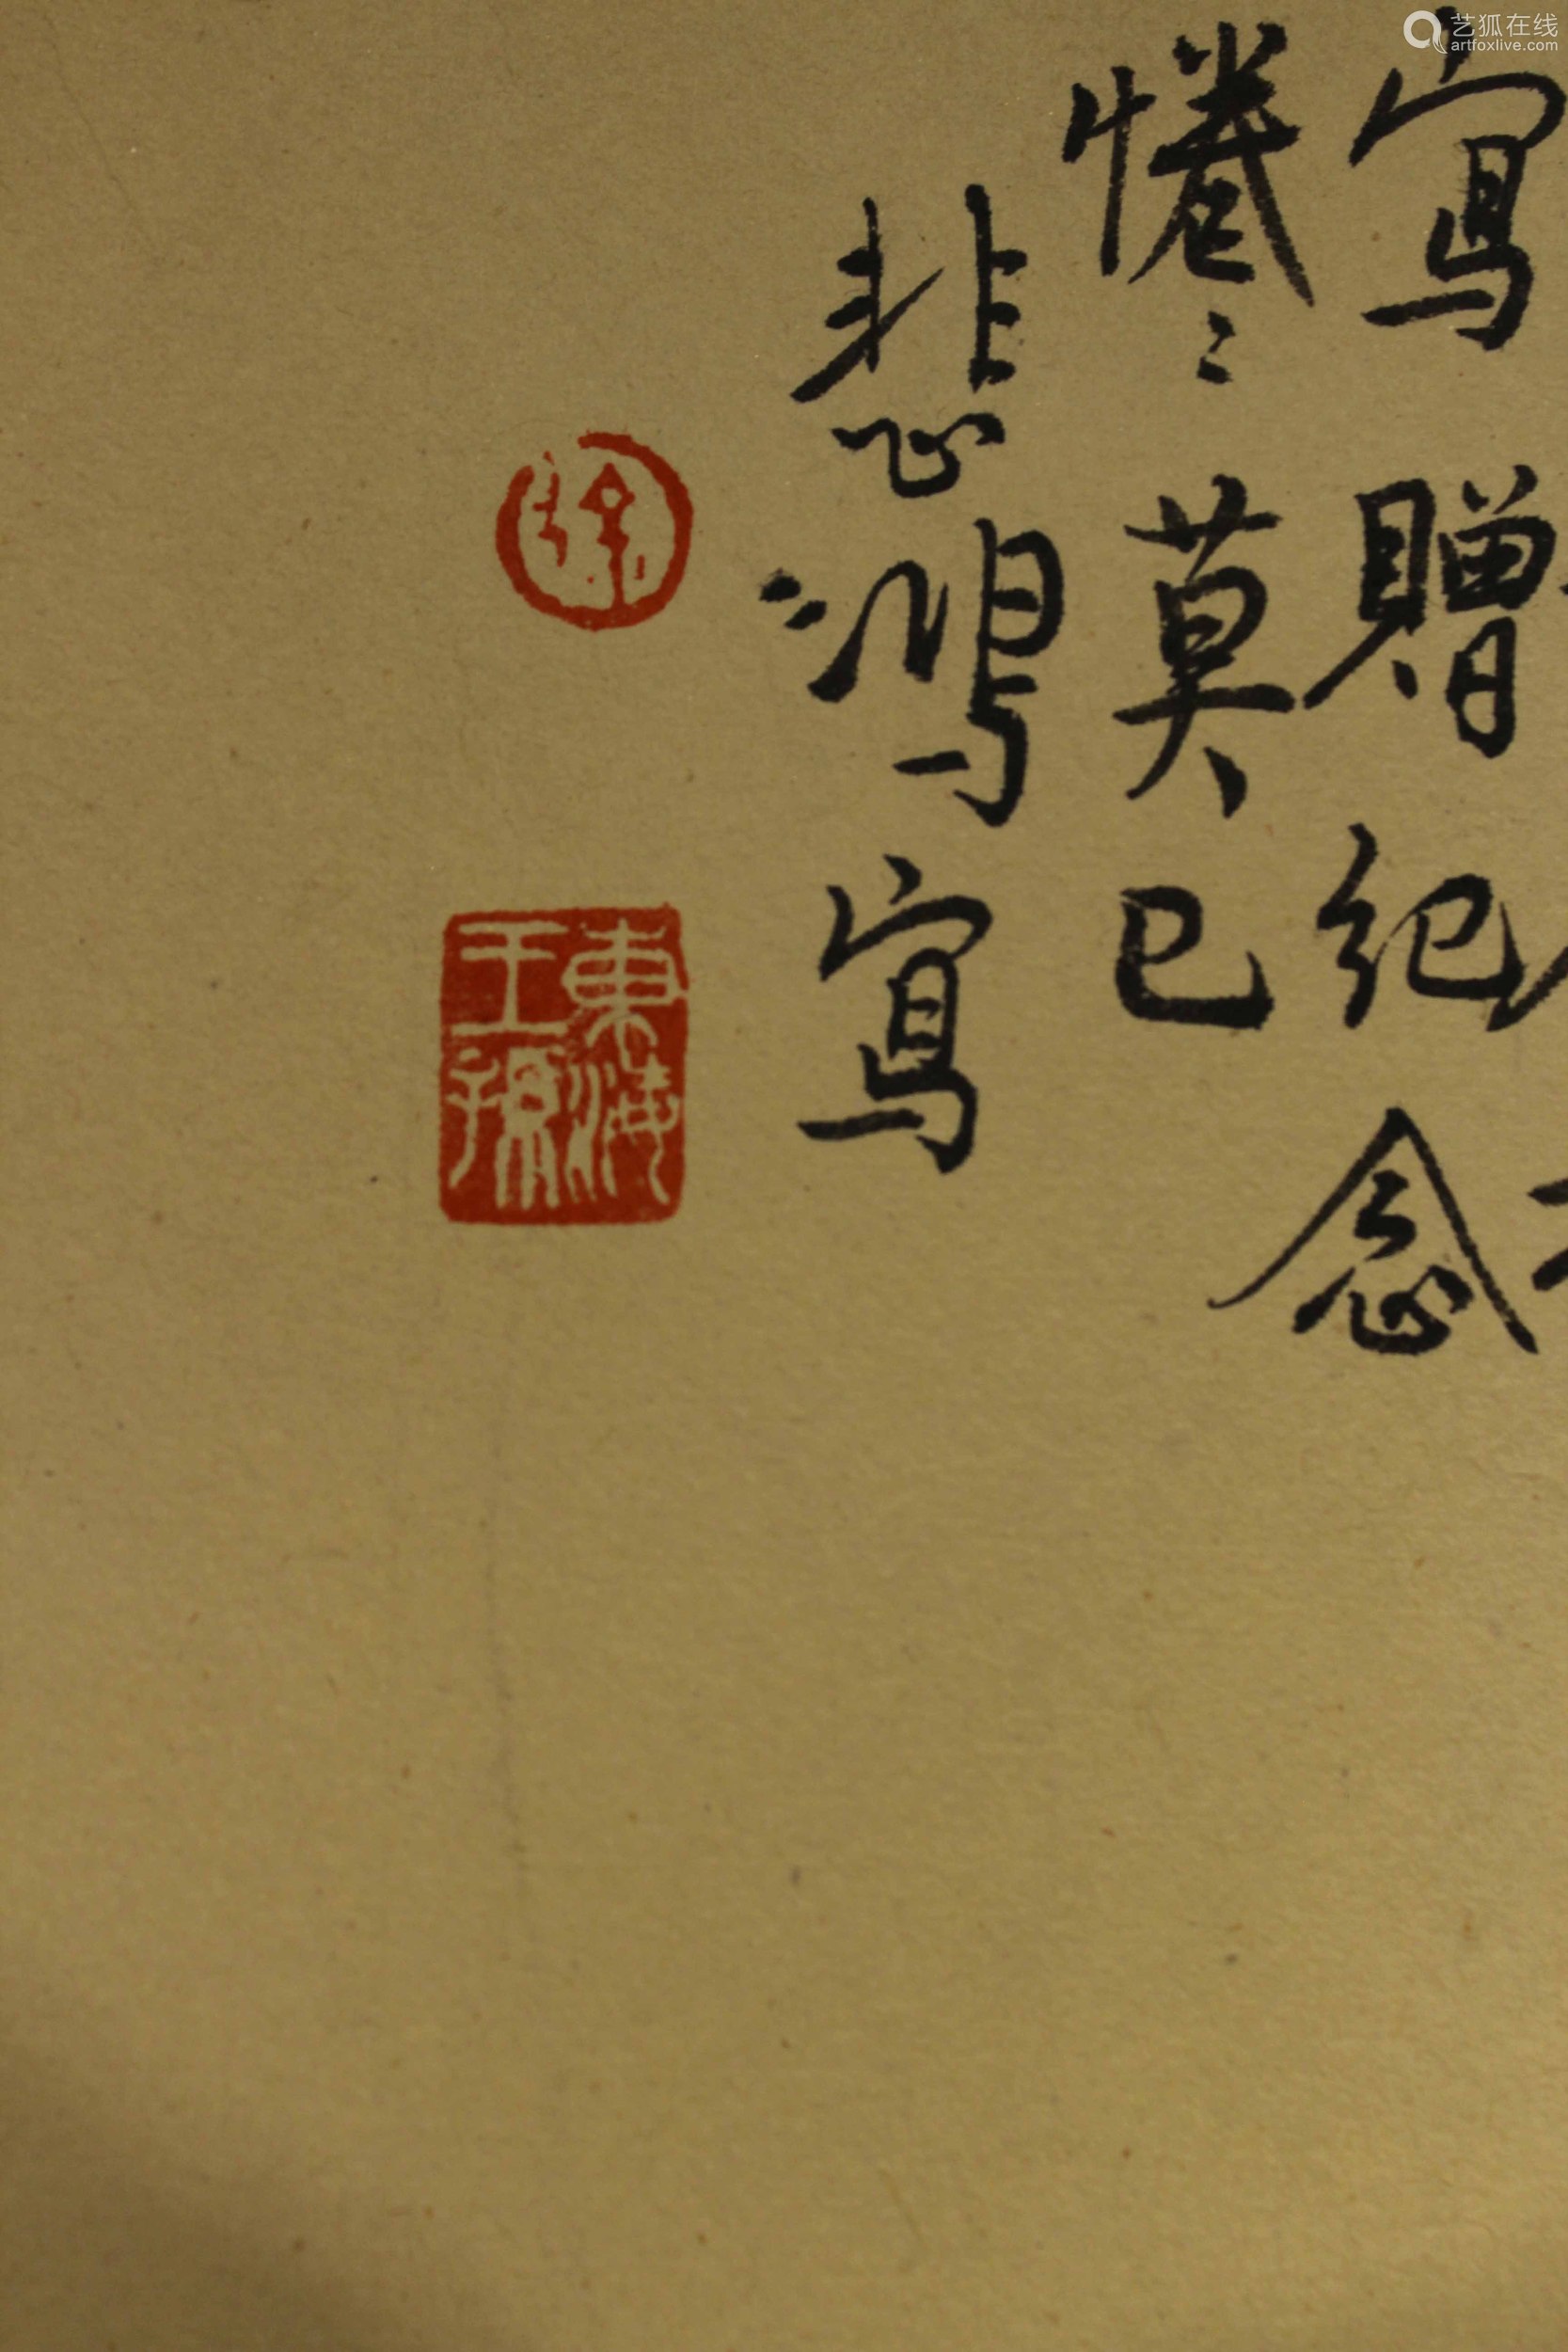 艺狐在线
artfoxlive.com
寫贈紀念
惓〻莫已
悲鴻寫
徐
東海
王孫